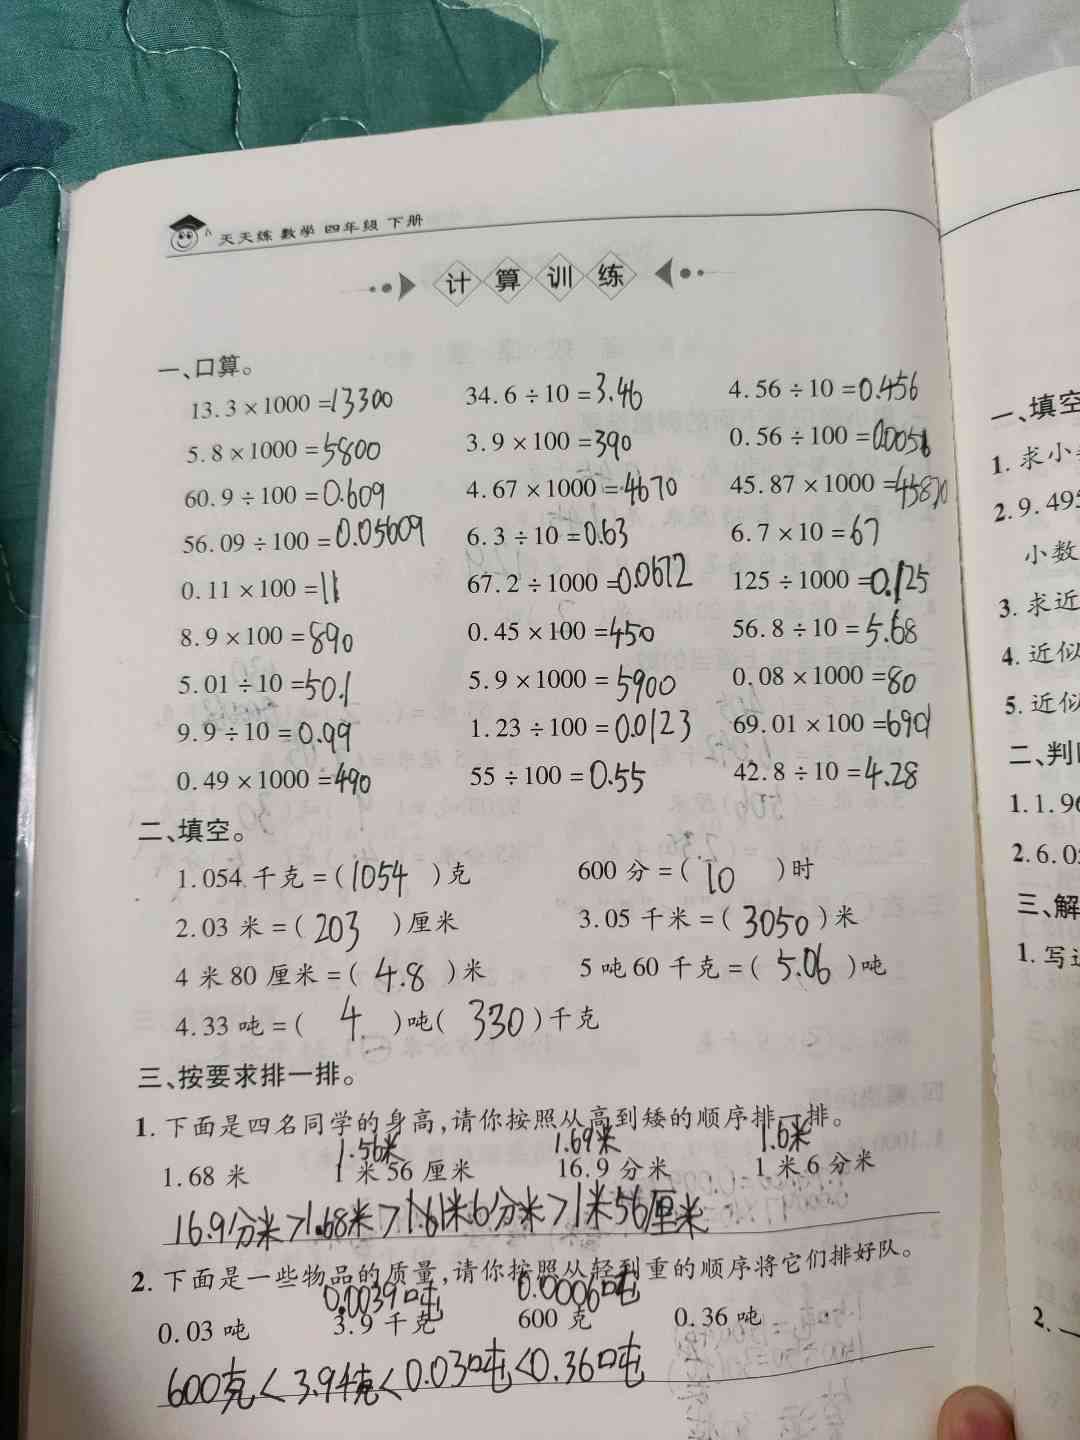 天天练 数学 四年级 下册
计算训练
一、口算。
13.3×1000=13300 34.6÷10=3.46 4.56÷10=0.456
5.8×1000=5800 3.9×100=390 0.56÷100=0.0056
60.9÷100=0.609 4.67×1000=4670 45.87×1000=45870
56.09÷100=0.05609 6.3÷10=0.63 6.7×10=67
0.11×100=11 67.2÷1000=0.0672 125÷1000=0.125
8.9×100=890 0.45×100=450 56.8÷10=5.68
5.01÷10=50.1 5.9×1000=5900 0.08×1000=80
9.9÷10=0.99 1.23÷100=0.0123 69.01×100=6901
0.49×1000=490 55÷100=0.55 42.8÷10=4.28
二、填空。
1.054千克=(1054)克 600分=(10)时
2.03米=(203)厘米 3.05千米=(3050)米
4米80厘米=(4.8)米 5吨60千克=(5.06)吨
4.33吨=(4)吨(330)千克
三、按要求排一排。
1.下面是四名同学的身高,请你按照从高到矮的顺序排一排。
1.56米 1.69米 1.6米
1.68米 1米56厘米 16.9分米 1米6分米
16.9分米>1.68米>1米6分米>1米56厘米
2.下面是一些物品的质量,请你按照从轻到重的顺序将它们排好队。
0.0039吨 0.0006吨
0.03吨 3.9千克 600克 0.36吨
600克<3.9千克<0.03吨<0.36吨
一、填空
1.求小
2.9.495
小数
3.求近
4.近似
5.近似
二、判
1.1.96
2.6.0
三、解
1.写
2.